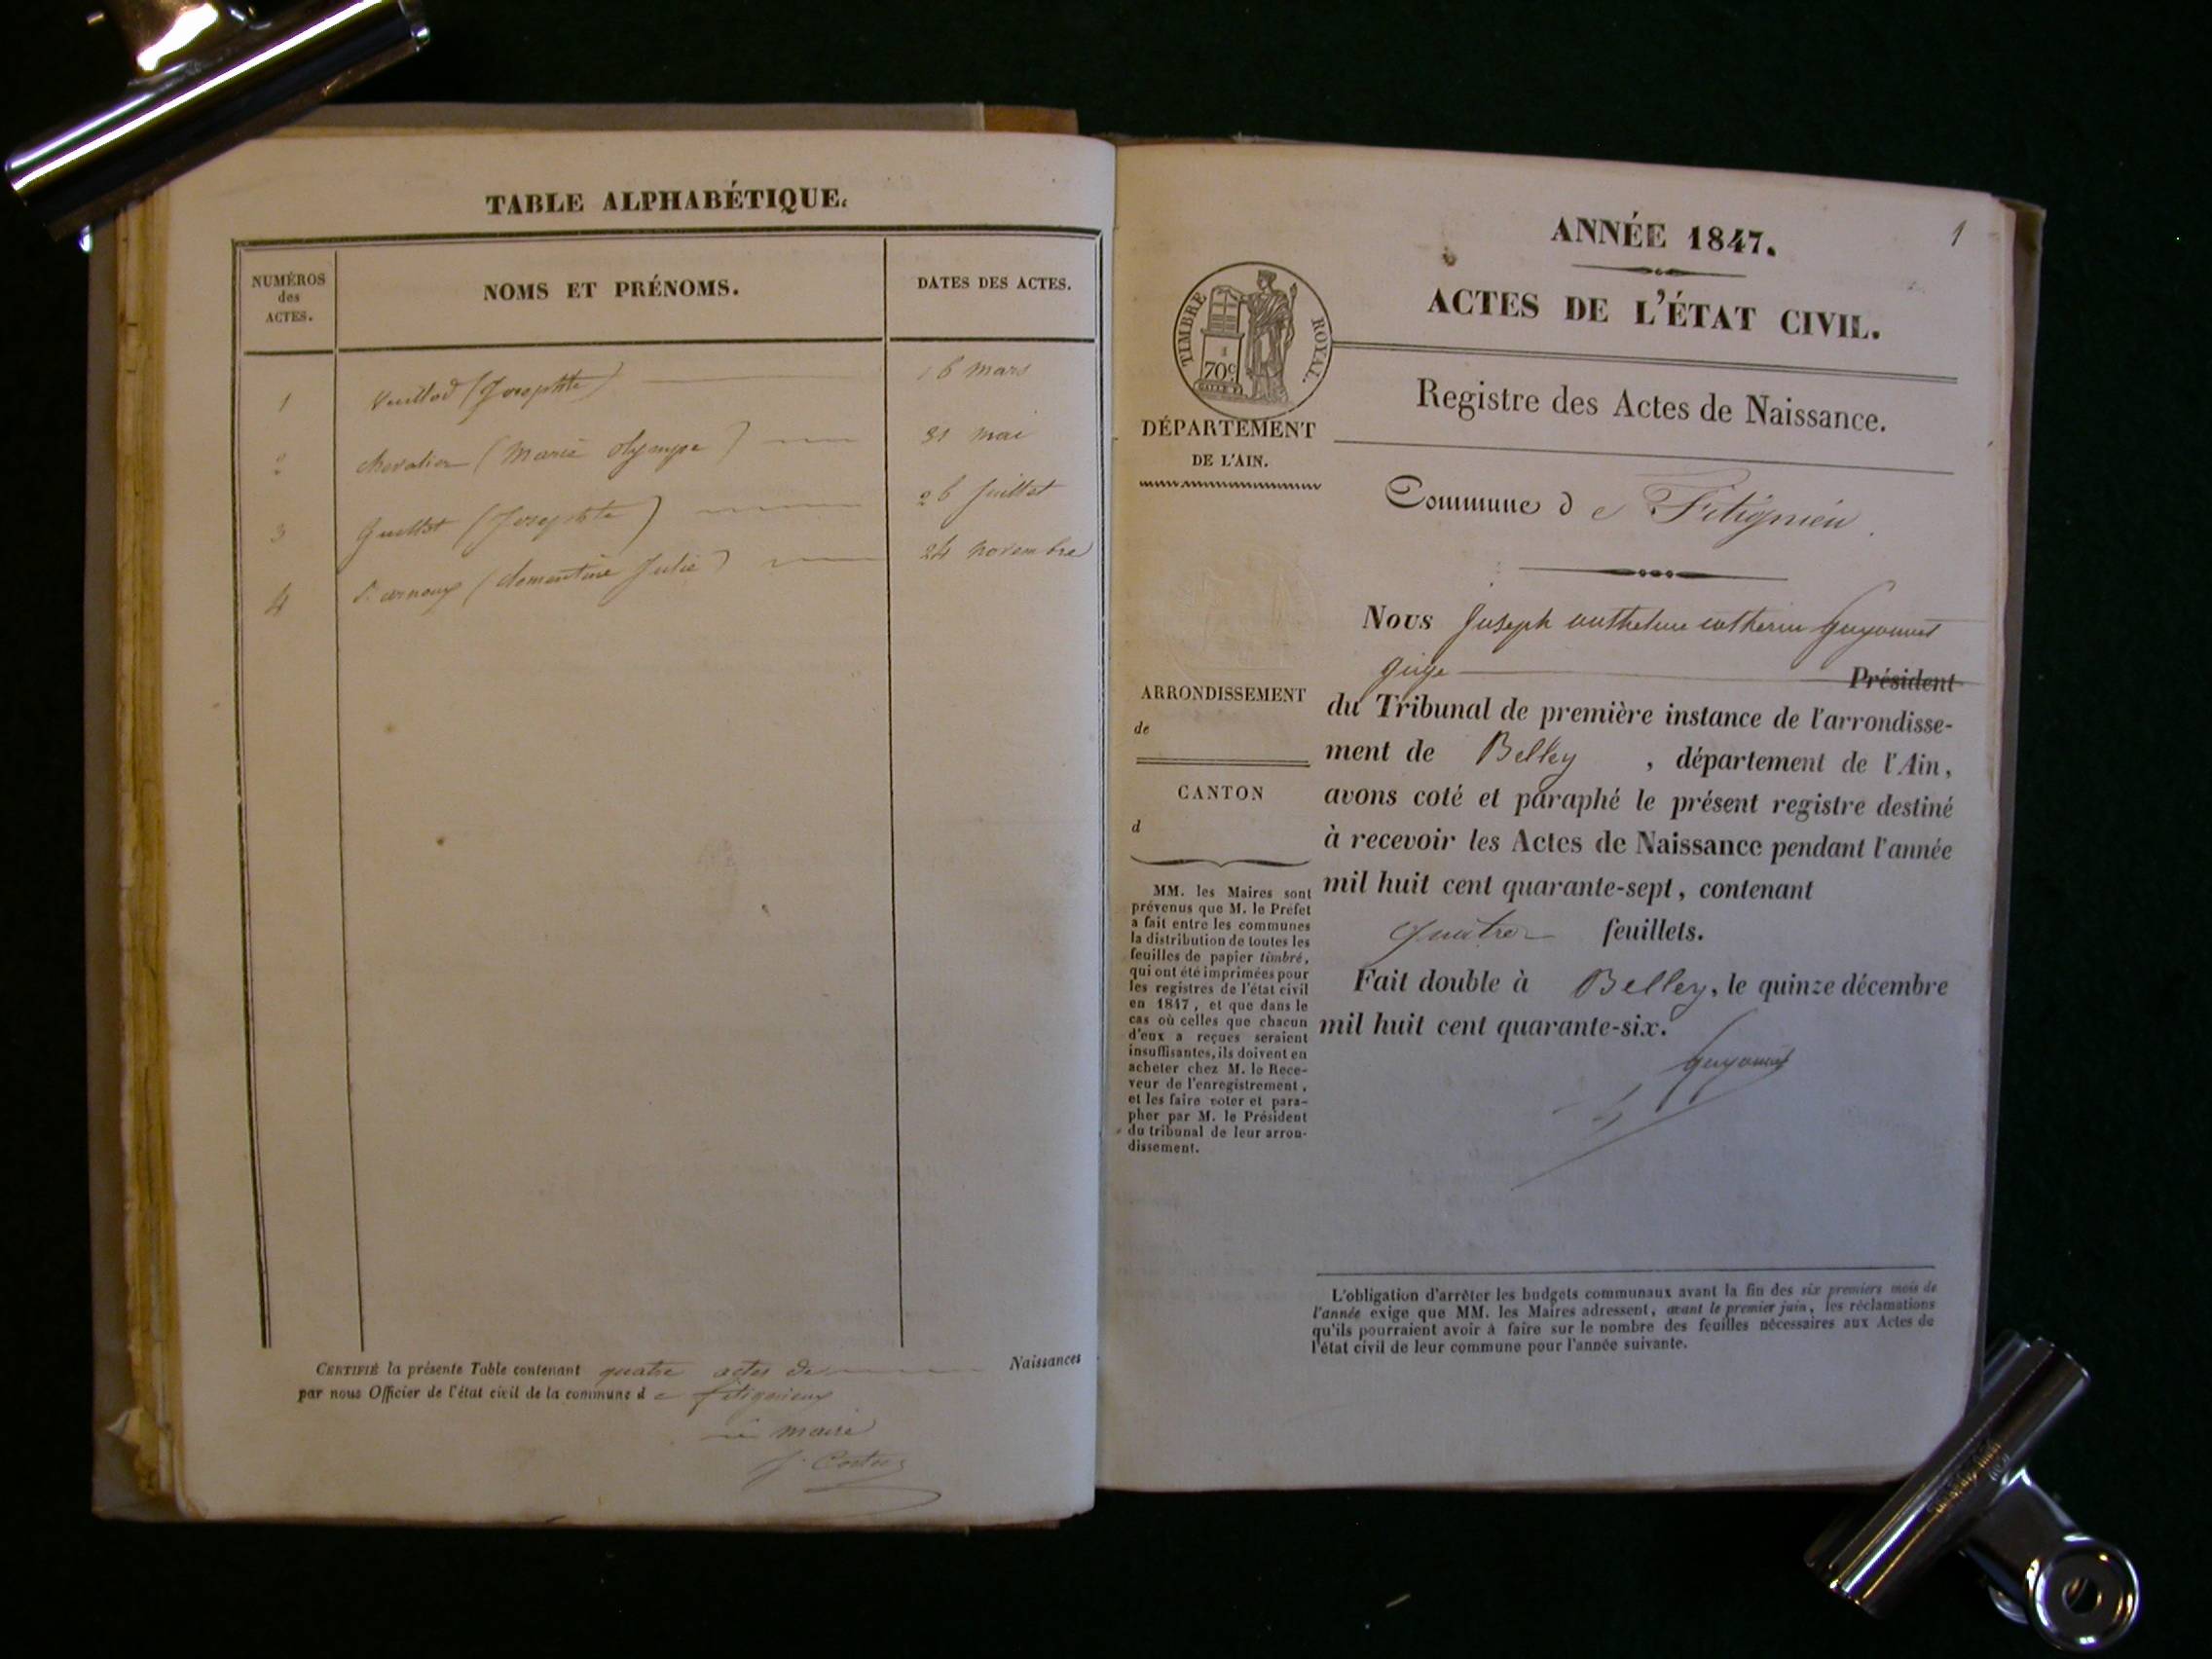 TABLE ALPHABÉTIQUE.
NUMÉROS
des
ACTES.
NOMS ET PRÉNOMS.
DATES DES ACTES.
1 Vuillod (Josephte) 16 mars
2 chevalier (Marie Olympe) 31 mai
3 Guillot (Josephte) 26 Juillet
4 (Clementine Julie) 24 novembre
CERTIFIÉ la présente Table contenant quatre actes de Naissances
par nous Officier de l'état civil de la commune de fitignieux
le maire
ANNÉE 1847.
1
ACTES DE L'ÉTAT CIVIL.
TIMBRE ROYAL.
70c
Registre des Actes de Naissance.
DÉPARTEMENT
DE L'AIN.
Commune de Fitignieu.
Nous Joseph anthelme Guyonnet
juge Président
du Tribunal de première instance de l'arrondisse-
ment de Belley, département de l'Ain,
avons coté et paraphé le présent registre destiné
à recevoir les Actes de Naissance pendant l'année
mil huit cent quarante-sept, contenant
quatre feuillets.
Fait double à Belley, le quinze décembre
mil huit cent quarante-six.
Guyonnet
ARRONDISSEMENT
de
CANTON
d
MM. les Maires sont
prévenus que M. le Préfet
a fait entre les communes
la distribution de toutes les
feuilles de papier timbré,
qui ont été imprimées pour
les registres de l'état civil
en 1847, et que dans le
cas où celles que chacun
d'eux a reçues seraient
insuffisantes, ils doivent en
acheter chez M. le Rece-
veur de l'enregistrement,
et les faire coter et para-
pher par M. le Président
du tribunal de leur arron-
dissement.
L'obligation d'arrêter les budgets communaux avant la fin des six premiers mois de
l'année exige que MM. les Maires adressent, avant le premier juin, les réclamations
qu'ils pourraient avoir à faire sur le nombre des feuilles nécessaires aux Actes de
l'état civil de leur commune pour l'année suivante.